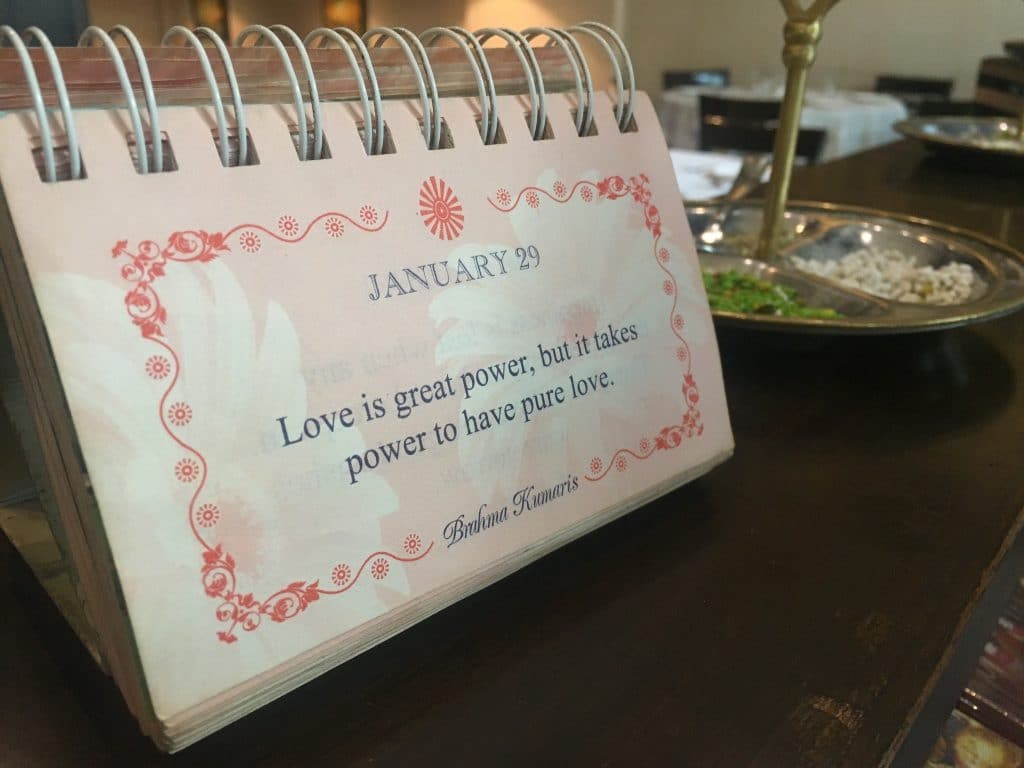 JANUARY 29
Love is great power, but it takes
power to have pure love.
Brahma Kumaris